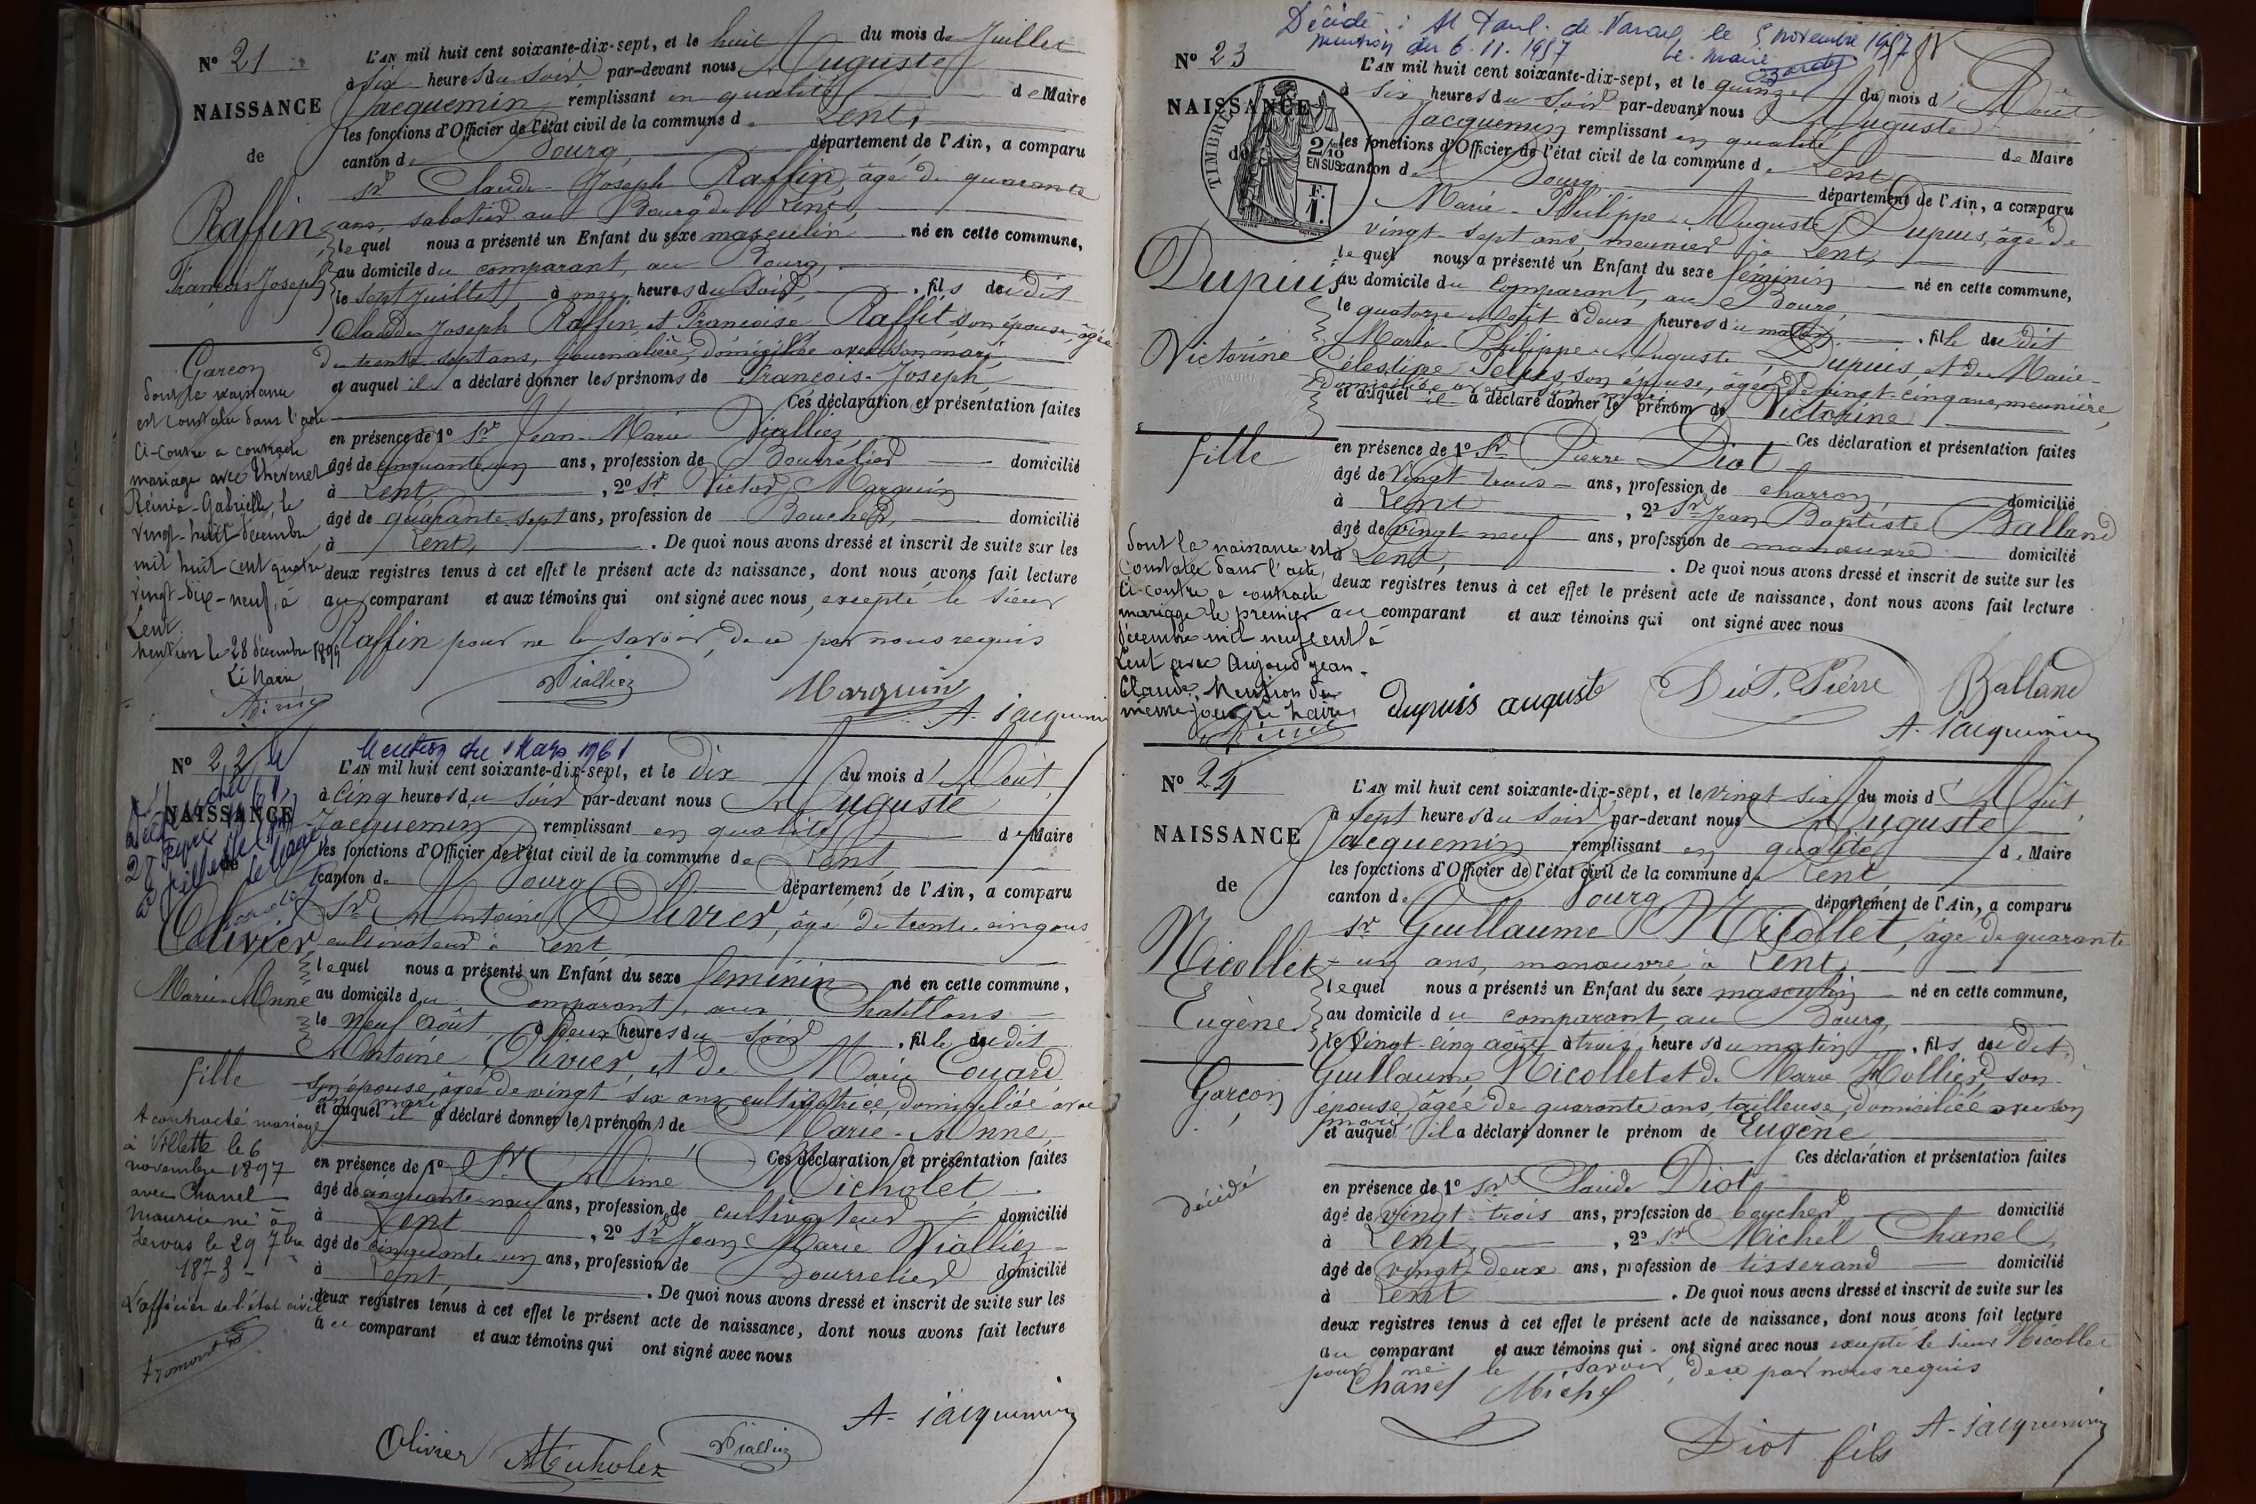 N° 21
NAISSANCE
de
Raffin
François Joseph
Garçon
dont la naissance
est constatée dans l'acte
ci-contre a contracté
mariage avec Thévenet
Rénée-Gabrielle, le
vingt-huit décembre
mil huit-cent quatre
vingt-dix-neuf, à
Lent.
Mention le 28 décembre 1899
Le Maire
L'AN mil huit cent soixante-dix-sept, et le huit du mois de Juillet
à six heures du soir par-devant nous Auguste
Jacquemin remplissant en qualité de Maire
les fonctions d'Officier de l'état civil de la commune de Lent,
canton de Bourg, département de l'Ain, a comparu
Sr Claude-Joseph Raffin, âgé de quarante
ans, sabotier au Bourg de Lent,
lequel nous a présenté un Enfant du sexe masculin né en cette commune,
au domicile du comparant, au Bourg,
le sept juillet à onze heures du soir, fils dudit
Claude Joseph Raffin et Françoise Raffit son épouse, âgée
de trente sept ans, journalière, domiciliée avec son mari
et auquel il a déclaré donner les prénoms de François-Joseph
Ces déclaration et présentation faites
en présence de 1° Sr Jean-Marie Vialliez
âgé de cinquante un ans, profession de Bourrelier domicilié
à Lent, 2° Sr Victor Marguin
âgé de quarante sept ans, profession de Boucher, domicilié
à Lent, . De quoi nous avons dressé et inscrit de suite sur les
deux registres tenus à cet effet le présent acte de naissance, dont nous avons fait lecture
au comparant et aux témoins qui ont signé avec nous, excepté le sieur
Raffin pour ne le savoir, de ce par nous requis
Vialliez Marguin A. Jacquemin
N° 22
Mention du 1 Mars 1961
NAISSANCE
de
Olivier
Marie-Anne
fille
A contracté mariage
à Villette le 6
novembre 1897
avec Chanel
Maurice né à
Servas le 29 7bre
L'officier de l'état civil
L'AN mil huit cent soixante-dix-sept, et le dix du mois d'Août
à cinq heures du soir par-devant nous Auguste
Jacquemin remplissant en qualité de Maire
les fonctions d'Officier de l'état civil de la commune de Lent
canton de Bourg département de l'Ain, a comparu
Sr Antoine Olivier, âgé de trente-cinq ans
cultivateur à Lent
lequel nous a présenté un Enfant du sexe féminin né en cette commune,
au domicile du comparant, aux Chatillons
le neuf Août, à deux heures du soir, fille dudit
Antoine Olivier, et de Marie Couard
son épouse, âgée de vingt six ans, cultivatrice, domiciliée avec
son mari
et auquel il a déclaré donner les prénoms de Marie-Anne,
Ces déclaration et présentation faites
en présence de 1° Sr Aimé Micholet
âgé de cinquante-neuf ans, profession de cultivateur domicilié
à Lent, 2° Sr Jean Marie Vialliez
âgé de cinquante un ans, profession de Bourrelier domicilié
à Lent, . De quoi nous avons dressé et inscrit de suite sur les
deux registres tenus à cet effet le présent acte de naissance, dont nous avons fait lecture
au comparant et aux témoins qui ont signé avec nous
A. Jacquemin
Olivier Vialliez
Décédée à St Paul-de-Varax, le 5 novembre 1957
Mention du 6.11.1957 Le Maire
N° 23
NAISSANCE
de
TIMBRE
2/10 EN SUS
Dupuis
Victorine
fille
dont la naissance est
constatée dans l'acte
ci-contre a contracté
mariage le premier
décembre mil neuf cent à
Lent avec Aujoud Jean-
Claude. Mention du
même jour. Le Maire
L'AN mil huit cent soixante-dix-sept, et le quinze du mois d'Août
à six heures du soir par-devant nous Auguste
Jacquemin remplissant en qualité de Maire
les fonctions d'Officier de l'état civil de la commune de Lent
canton de Bourg département de l'Ain, a comparu
Marie-Philippe-Auguste Dupuis, âgé de
vingt-sept ans, meunier à Lent,
lequel nous a présenté un Enfant du sexe féminin né en cette commune,
au domicile du comparant, au Bourg,
le quatorze Août à deux heures du matin, fille dudit
Marie-Philippe-Auguste Dupuis, et de Marie-
Célestine son épouse, âgée de vingt-cinq ans, meunière,
domiciliée avec son mari
et auquel il a déclaré donner le prénom de Victorine
Ces déclaration et présentation faites
en présence de 1° Sr Pierre Diot
âgé de vingt trois ans, profession de charron, domicilié
à Lent, 2° Sr Jean Baptiste Balland
âgé de vingt-neuf ans, profession de manœuvre domicilié
à Lent, . De quoi nous avons dressé et inscrit de suite sur les
deux registres tenus à cet effet le présent acte de naissance, dont nous avons fait lecture
au comparant et aux témoins qui ont signé avec nous
dupuis auguste Diot Pierre Balland
A. Jacquemin
N° 24
NAISSANCE
de
Nicollet
Eugène
Garçon
Décédé
L'AN mil huit cent soixante-dix-sept, et le vingt six du mois d'Août
à sept heures du soir par-devant nous Auguste
Jacquemin remplissant en qualité de Maire
les fonctions d'Officier de l'état civil de la commune de Lent
canton de Bourg département de l'Ain, a comparu
Sr Guillaume Nicollet, âgé de quarante
un ans, manœuvre à Lent,
lequel nous a présenté un Enfant du sexe masculin né en cette commune,
au domicile du comparant, au Bourg,
le vingt-cinq août à trois heures du matin, fils dudit
Guillaume Nicollet et de Marie Hollier, son
épouse, âgée de quarante ans, tailleuse, domiciliée avec son
mari
et auquel il a déclaré donner le prénom de Eugène
Ces déclaration et présentation faites
en présence de 1° Sr Claude Diot,
âgé de vingt-trois ans, profession de boucher domicilié
à Lent, 2° Sr Michel Chanel,
âgé de vingt-deux ans, profession de tisserand domicilié
à Lent . De quoi nous avons dressé et inscrit de suite sur les
deux registres tenus à cet effet le présent acte de naissance, dont nous avons fait lecture
au comparant et aux témoins qui ont signé avec nous excepté le sieur Nicollet
pour ne le savoir, de ce par nous requis
Chanel Michel
Diot fils A. Jacquemin